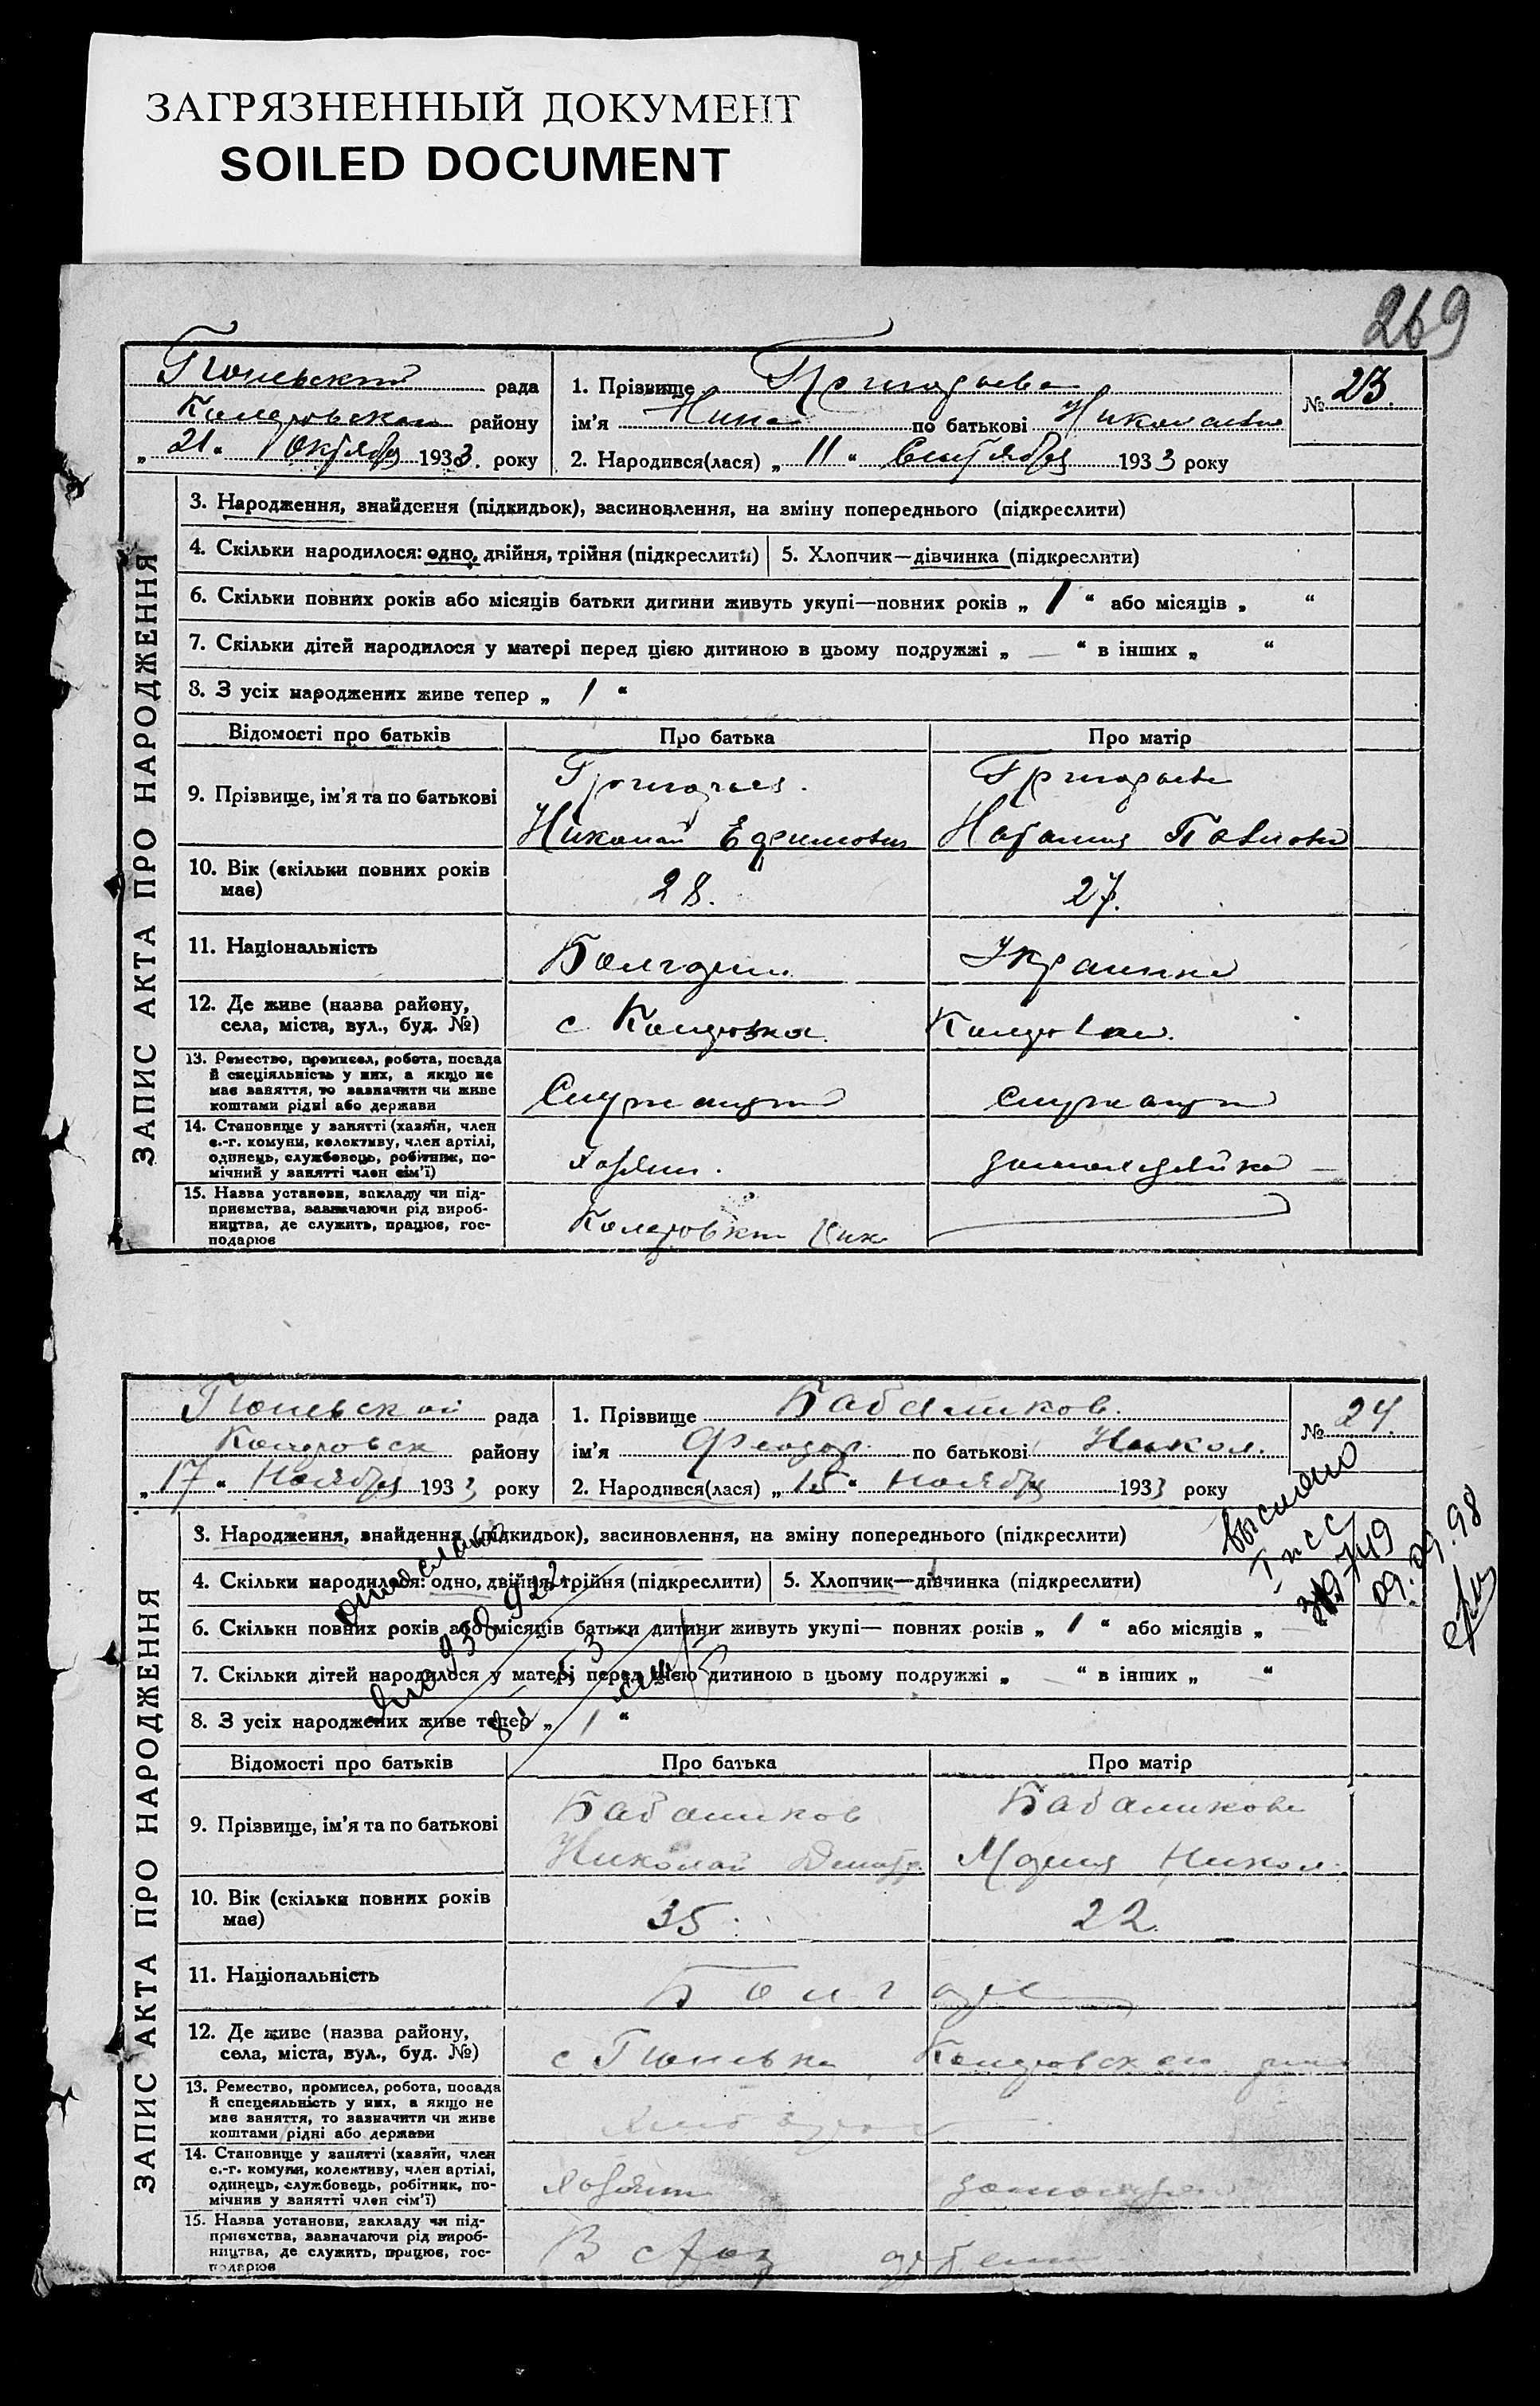 ЗАГРЯЗНЕННЫЙ ДОКУМЕНТ
SOILED DOCUMENT
269
ЗАПИС АКТА ПРО НАРОДЖЕННЯ
Гюневской рада
району
„21“ Октября 1933. року
1. Прізвище Григорьева
ім'я Нина по батькові Николаевна
№ 23.
2. Народився(лася) „11“ Сентября 1933 року
3. Народження, знайдення (підкидьок), засиновлення, на зміну попереднього (підкреслити)
4. Скільки народилося: одно, двійня, трійня (підкреслити) 5. Хлопчик—дівчинка (підкреслити)
6. Скільки повних років або місяців батьки дитини живуть укупі—повних років „ 1 “ або місяців „ “
7. Скільки дітей народилося у матері перед цією дитиною в цьому подружжі „ — “ в інших „ “
8. З усіх народжених живе тепер „ 1 “
Відомості про батьків Про батька Про матір
9. Прізвище, ім'я та по батькові
Григорьев. Григорьева
Николай Ефимович Наталия Павловна
10. Вік (скільки повних років
має)
28. 27.
11. Національність
Болгарин Украинка
12. Де живе (назва району,
села, міста, вул., буд. №)
13. Ремество, промисел, робота, посада
й спеціяльність у них, а якщо не
має заняття, то зазначити чи живе
коштами рідні або держави
Служащий
14. Становище у занятті (хазяїн, член
с.-г. комуни, колективу, член артілі,
одинець, службовець, робітник, по-
мічний у занятті член сім'ї)
Хозяин. домохозяйка —
15. Назва установи, закладу чи під-
приємства, зазначаючи рід вироб-
ництва, де служить, працює, гос-
подарює
ЗАПИС АКТА ПРО НАРОДЖЕННЯ
Гюневской рада
району
„17“ Ноября 1933 року
1. Прізвище Бабаликов.
ім'я Феодор по батькові Никол.
№ 24.
2. Народився(лася) „15“ Ноября 1933 року
3. Народження, знайдення (підкидьок), засиновлення, на зміну попереднього (підкреслити)
4. Скільки народилося: одно, двійня, трійня (підкреслити) 5. Хлопчик—дівчинка (підкреслити)
6. Скільки повних років або місяців батьки дитини живуть укупі— повних років „ 1 “ або місяців „ — “
7. Скільки дітей народилося у матері перед цією дитиною в цьому подружжі „ — “ в інших „ — “
8. З усіх народжених живе тепер „ 1 “
выслано
09.09.98
Відомості про батьків Про батька Про матір
9. Прізвище, ім'я та по батькові
Бабаликов Бабаликова
Николай Дмитр. Мария Никол.
10. Вік (скільки повних років
має)
35. 22.
11. Національність
Болгаре
12. Де живе (назва району,
села, міста, вул., буд. №)
с Гюневка
13. Ремество, промисел, робота, посада
й спецеяльність у них, а якщо не
має заняття, то зазначити чи живе
коштами рідні або держави
14. Становище у занятті (хазяїн, член
с.-г. комуни, колективу, член артілі,
одинець, службовець, робітник, по-
мічнив у занятті член сім'ї)
Хозяин
15. Назва установи, закладу чи під-
приємства, зазначаючи рід вироб-
ництва, де служить, працює, гос-
подарює